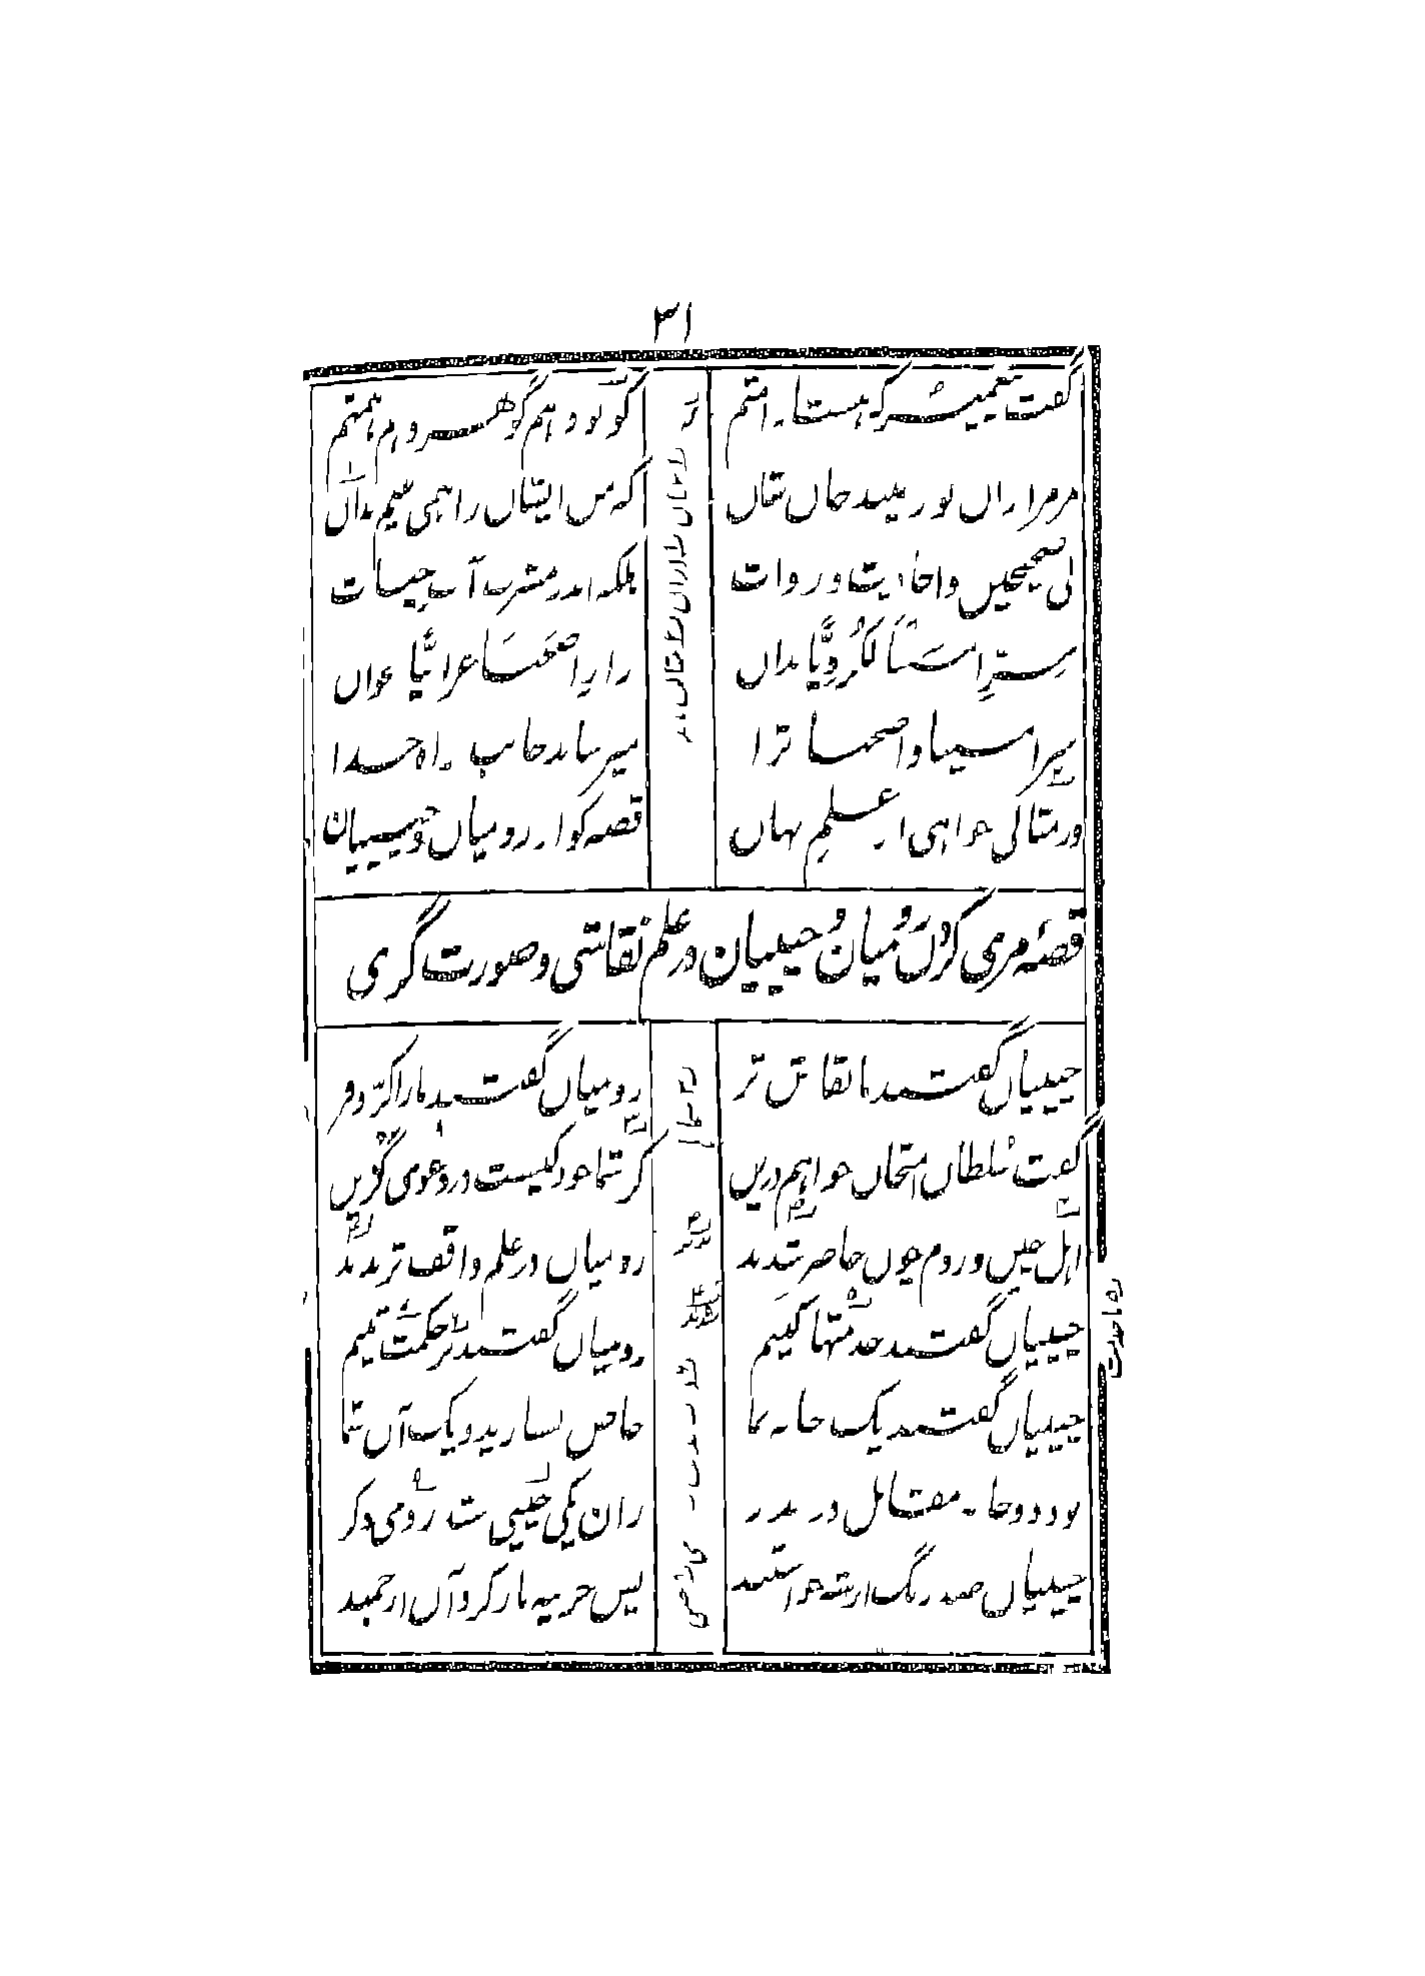 ۳۱
گفت پیغمبر که هست از امتم کو بود هم گوهر و هم همتم
مرمرا زان نور بیند جان شان که من ایشان را همی بینم بدان
بی صحیحین و احادیث و روات بلکه اندر مشرب آب حیات
سرّ امسینا لکردیّا بدان راز اصبحنا عرابیّا بخوان
سر امسینا و اصبحنا ترا میرساند جانب راه خدا
ور مثالی خواهی از علم نهان قصه گو از رومیان و چینیان
قصهٔ مری کردن رومیان و چینیان در علم نقاشی و صورت گری
چینیان گفتند ما نقاش تر رومیان گفتند ما را کرّ و فر
گفت سلطان امتحان خواهم درین کز شما خود کیست در دعوی گزین
اهل چین و روم چون حاضر شدند رومیان در علم واقف تر بدند
چینیان گفتند خدمتها کنیم رومیان گفتند در حکمت تنیم
چینیان گفتند یک خانه بما خاص بسپارید و یک آن شما
بود دو خانه مقابل در بدر زان یکی چینی ستد رومی دگر
چینیان صد رنگ از شه خواستند پس خزینه باز کرد آن ارجمند